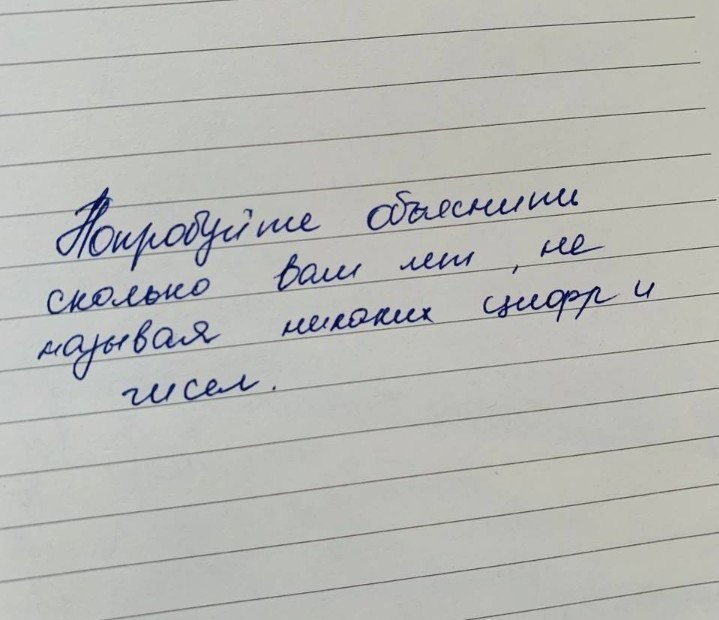 Попробуйте объяснить
сколько вам лет, не
называя никаких цифр и
чисел.